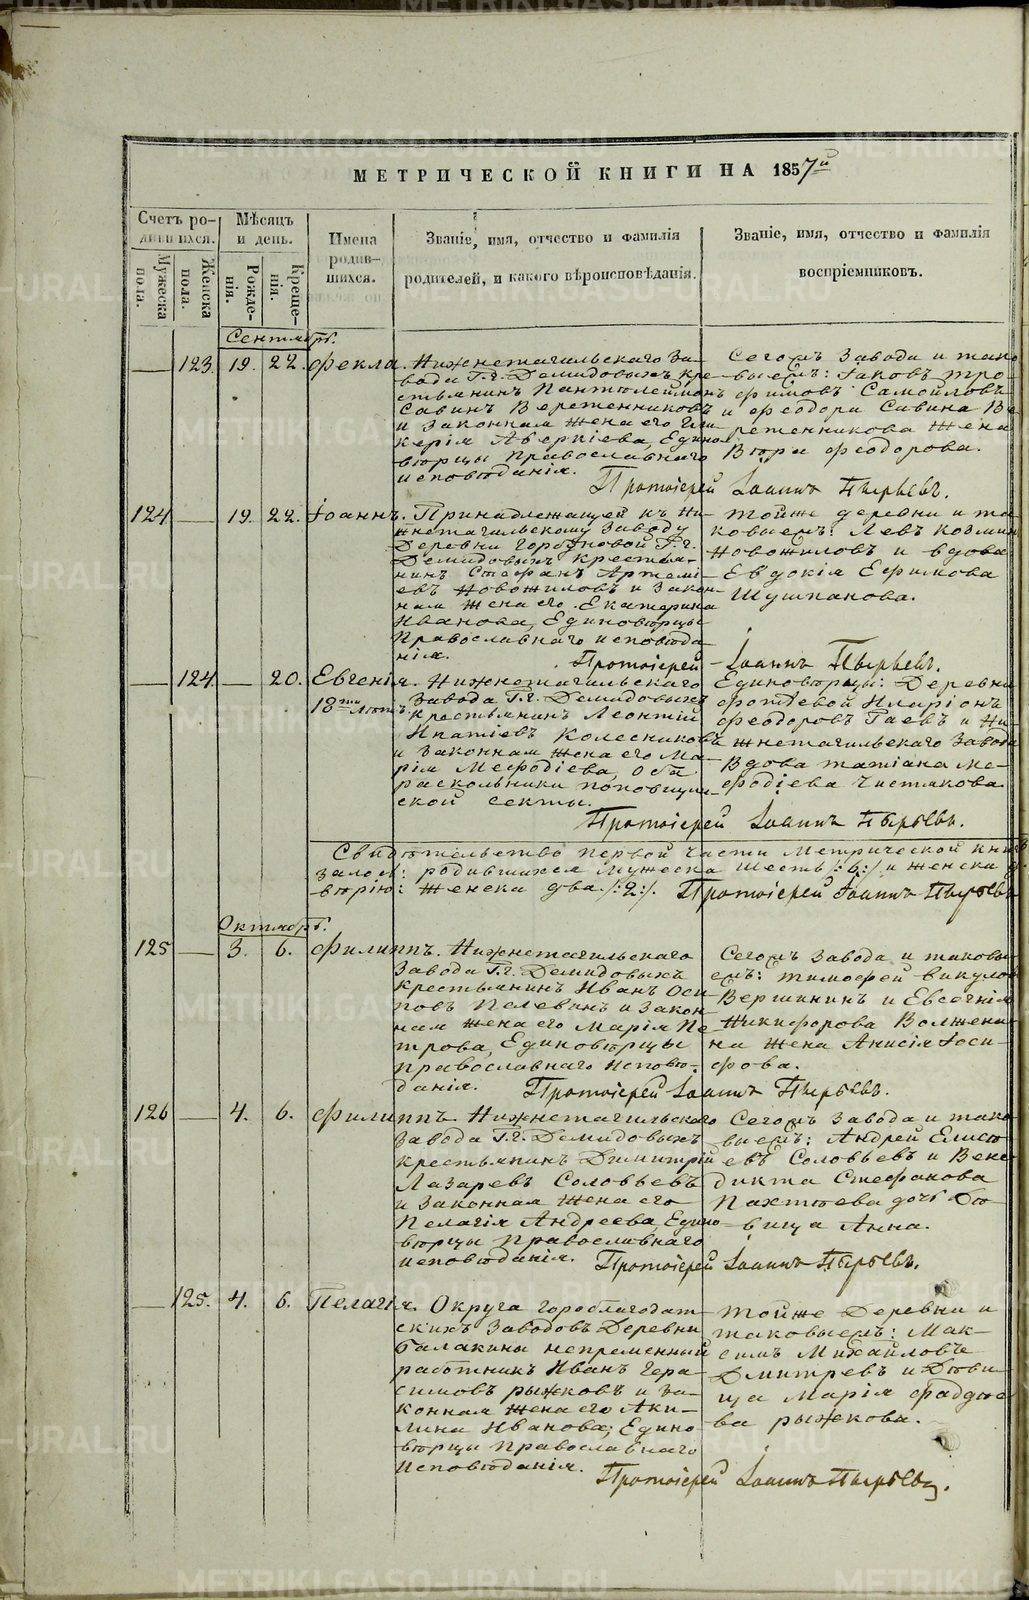 МЕТРИЧЕСКОЙ КНИГИ НА 1857й
Счетъ родившихся.
Мужеска пола.
Женска пола.
Мѣсяцъ и день.
Рожденія.
Крещенія.
Имена родившихся.
Званіе, имя, отчество и фамилія
родителей, и какого вѣроисповѣданія.
Званіе, имя, отчество и фамилія
воспріемниковъ.
Сентябрь.
123. 19. 22. Фекла.
Нижнетагильскаго За-
вода Г.г. Демидовыхъ кре-
стьянинъ Пантолеймонъ
Савинъ Веретенниковъ
и Законная жена его Гли-
керія Аверкіева, Едино-
вѣрцы Православнаго
исповѣданія.
Сегожъ Завода и тако-
выежъ: Іаковъ Тро-
фимовъ Самойловъ
и Феодора Савина Ве-
ретенникова жена
Вѣра Феодорова.
Протоіерей Іоаннъ Пырьевъ.
124 19. 22. Іоаннъ.
Принадлежащей къ Ни-
жнетагильскому Заводу
Деревни Горбуновой Г.г.
Демидовыхъ крестья-
нинъ Стефанъ Артемі-
евъ Новожиловъ и Закон-
ная жена его Екатерина
Иванова, Единовѣрцы
Православнаго исповѣда-
нія.
Тойже деревни и та-
ковыежъ: Левъ Козминъ
Новожиловъ и вдова
Евдокія Ефимова
Шушпанова.
Протоіерей Іоаннъ Пырьевъ.
124. 20. Евгенія.
18ти лѣтъ.
Нижнетагильскаго
Завода Г.г. Демидовыхъ
крестьянинъ Леонтій
Ипатіевъ Колесниковъ
и Законная жена его Ма-
рія Мефодіева, Оба
раскольники поповщин-
ской секты.
Единовѣрцы: Деревни
Фотѣевой Иларіонъ
Феодоровъ Гаевъ и Ни-
жнетагильскаго Завода
Вдова Татіана Ме-
фодіева Чистякова
Протоіерей Іоаннъ Пырьевъ.
Свидѣтельство первой части Метрической книги
родившихся мужеска шесть /:6:/ и женска
женска два /:2:/. Протоіерей Іоаннъ Пырьевъ
Октябрь.
125 3. 6. Филиппъ.
Нижнетагильскаго
Завода Г.г. Демидовыхъ
крестьянинъ Иванъ Оси-
повъ Пелевинъ и Закон-
ная жена его Марія Пе-
трова, Единовѣрцы
православнаго исповѣ-
данія.
Сегожъ Завода и таковы-
ежъ: Тимофей Викуловъ
Вершининъ и Евсегнія
Никифорова Волжени-
на жена Анисія Іоси-
фова.
Протоіерей Іоаннъ Пырьевъ.
126 4. 6. Филиппъ
Нижнетагильскаго
Завода Г.г. Демидовыхъ
крестьянинъ Димитрій
Лазаревъ Соловьевъ
и Законная жена его
Пелагія Андреева, Едино-
вѣрцы Православнаго
исповѣданія.
Сегожъ Завода и тако-
выежъ: Андрей Елисѣ-
евъ Соловьевъ и Вене-
дикта Стефанова
Пахтѣева дочь Дѣ-
вица Анна.
Протоіерей Іоаннъ Пырьевъ.
125. 4. 6. Пелагія.
Округа Гороблагодат-
скихъ Заводовъ Деревни
Балакины непременный
работникъ Иванъ Гера-
симовъ Рыжковъ и За-
конная жена его Аки-
лина Иванова, Едино-
вѣрцы Православнаго
исповѣданія.
Тойже Деревни и
таковыежъ: Мак-
симъ Михайловъ
Дмитревъ и Дѣви-
ца Марія Фаддѣе-
ва Рыжкова.
Протоіерей Іоаннъ Пырьевъ.
METRIKI.GASO-URAL.RU